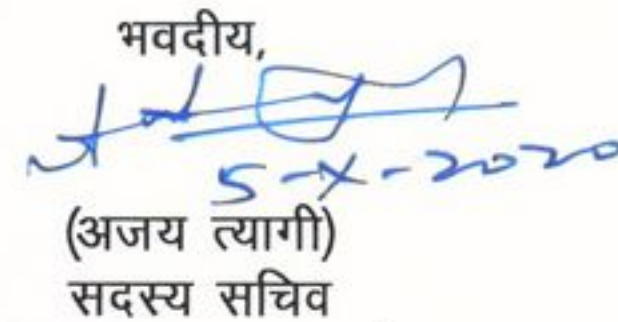 भवदीय,
5-X-2020
(अजय त्यागी)
सदस्य सचिव